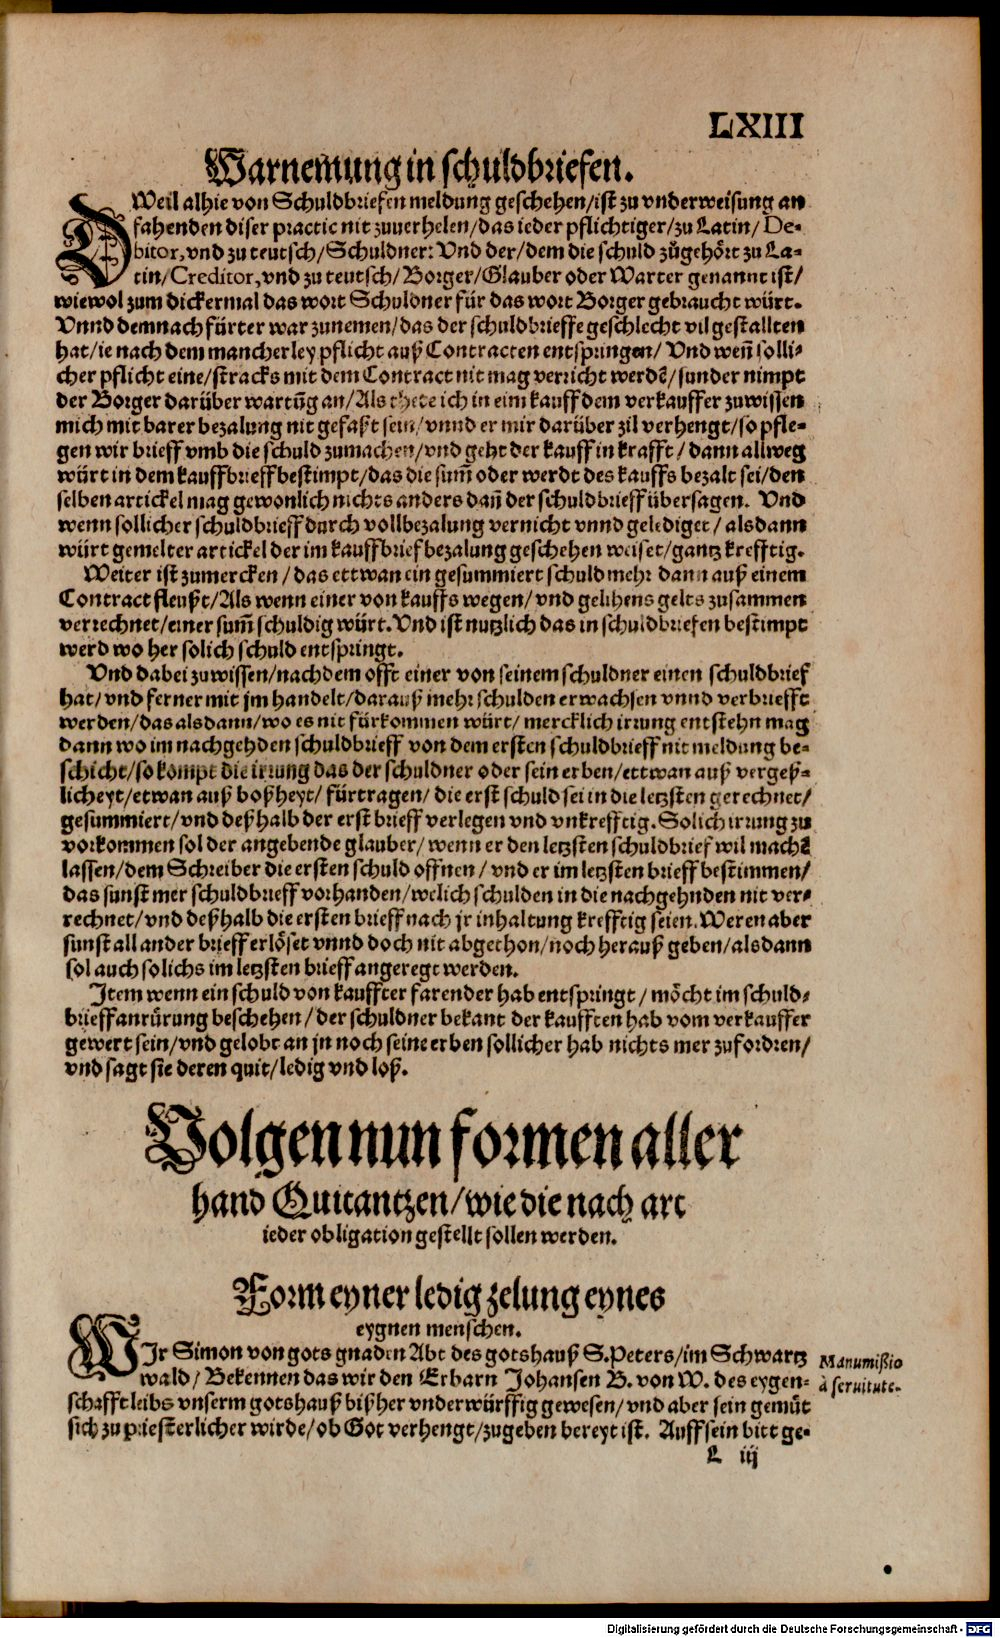 LXIII
Warnemung in schuldbriefen.
DWeil alhie von Schuldbriefen meldung geschehen/ist zu vnderweisung an
fahenden diser practic nit zuuerhelen/das ieder pflichtiger/zu Latin/De-
bitor, vnd zu teutsch/Schuldner: Vnd der/dem die schuld zůgehört zu La-
tin/Creditor, vnd zu teutsch/Borger/Glauber oder Warter genannt ist/
wiewol zum dickermal das wort Schuldner für das wort Borger gebraucht würt.
Vnnd demnach fürter war zunemen/das der schuldbrieffe geschlecht vil gestallten
hat/ie nach dem mancherley pflicht auß Contracten entspringen/Vnd weñ solli-
cher pflicht eine/stracks mit dem Contract nit mag verricht werdē/sunder nimpt
der Borger darüber wartūg an/Als thete ich in eim kauff dem verkauffer zuwissen
mich mit barer bezalung nit gefaßt sein/vnnd er mir darüber zil verhengt/so pfle-
gen wir brieff vmb die schuld zumachen/vnd geht der kauff in krafft/dann allweg
würt in dem kauffbrieff bestimpt/das die sum̃ oder werdt des kauffs bezalt sei/den
selben artickel mag gewonlich nichts anders dañ der schuldbrieff übersagen. Vnd
wenn sollicher schuldbrieff durch vollbezalung vernicht vnnd gelediget/alsdann
würt gemelter artickel der im kauffbrief bezalung geschehen weiset/gantz krefftig.
Weiter ist zumercken/das ettwan ein gesummiert schuld mehr dann auß einem
Contract fleußt/Als wenn einer von kauffs wegen/vnd gelihens gelts zusammen
verrechnet/einer sum̃ schuldig würt. Vnd ist nutzlich das in schuldbriefen bestimpt
werd wo her solich schuld entspringt.
Vnd dabei zuwissen/nachdem offt einer von seinem schuldner einen schuldbrief
hat/vnd ferner mit jm handelt/darauß mehr schulden erwachsen vnnd verbriefft
werden/das alsdann/wo es nit fürkommen würt/mercklich irrung entstehn mag
dann wo im nachgehden schuldbrieff von dem ersten schuldbrieff nit meldung be-
schicht/so kompt die irrung das der schuldner oder sein erben/ettwan auß vergeß-
licheyt/etwan auß boßheyt/fürtragen/die erst schuld sei in die letzsten gerechnet/
gesummiert/vnd deßhalb der erst brieff verlegen vnd vnkrefftig. Solich irrung zu
vorkommen sol der angebende glauber/wenn er den letzsten schuldbrief wil machē
lassen/dem Schreiber die ersten schuld offnen/vnd er im letzsten brieff bestimmen/
das sunst mer schuldbrieff vorhanden/welich schulden in die nachgehnden nit ver-
rechnet/vnd deßhalb die ersten brieff nach jr inhaltung krefftig seien. Weren aber
sunst all ander brieff erlöset vnnd doch nit abgethon/noch herauß geben/alsdann
sol auch solichs im letzsten brieff angeregt werden.
Item wenn ein schuld von kauffter farender hab entspringt/möcht im schuld-
brieff anrürung beschehen/der schuldner bekant der kaufften hab vom verkauffer
gewert sein/vnd gelobt an jn noch seine erben sollicher hab nichts mer zufordren/
vnd sagt sie deren quit/ledig vnd loß.
Volgen nun formen aller
hand Quitantzen/wie die nach art
ieder obligation gestellt sollen werden.
Form eyner ledig zelung eynes
eygnen menschen.
WIr Simon von gots gnaden Abt des gotshauß S. Peters/im Schwartz
wald/Bekennen das wir den Erbarn Johansen B. von W. des eygen-
schafft leibs vnserm gotshauß bißher vnderwürffig gewesen/vnd aber sein gemüt
sich zu priesterlicher wirde/ob Got verhengt/zugeben bereyt ist. Auff sein bitt ge-
Manumißio
à seruitute.
L iij
Digitalisierung gefördert durch die Deutsche Forschungsgemeinschaft - DFG